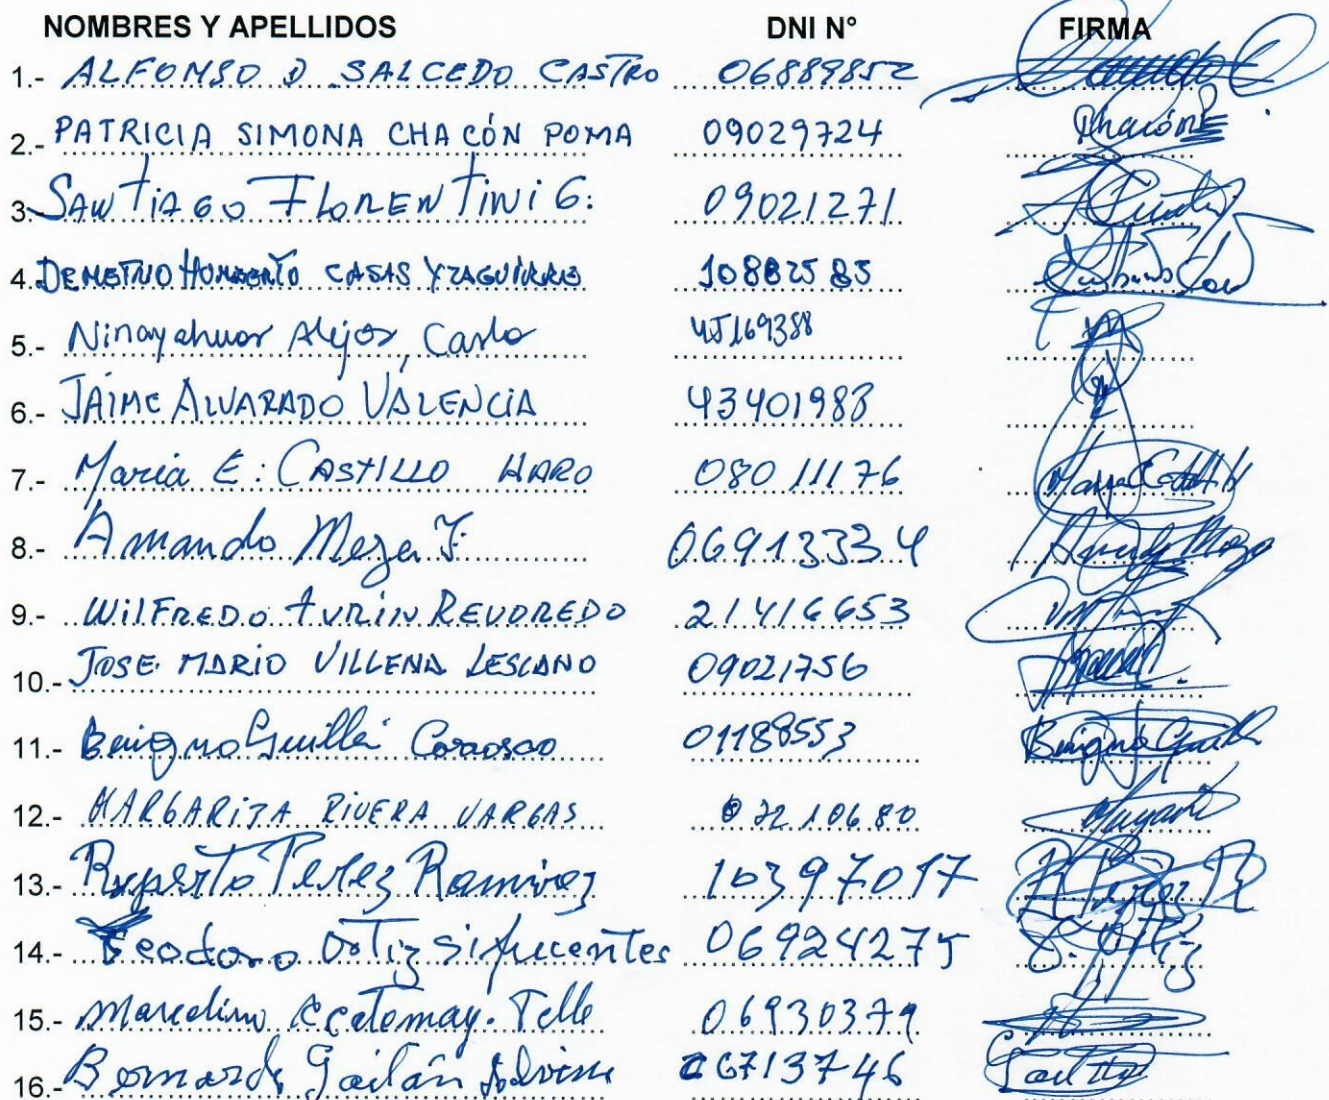 NOMBRES Y APELLIDOS DNI N° FIRMA
1.- ALFONSO D SALCEDO CASTRO 06889852
2.- PATRICIA SIMONA CHACÓN POMA 09029724
3.- SANTIAGO FLORENTINI G. 09021271
4. DEMETRIO HUMBERTO CASAS YZAGUIRRE 10882583
5.- Ninayahuar Alejos, Carlo 45169388
6.- JAIME ALVARADO VALENCIA 43401988
7.- Maria E. CASTILLO HARO 08011176 Maria
8.- Amando Meza F. 06913334 Meza
9.- WILFREDO TURIN REVOREDO 21416653
10.- JOSE MARIO VILLENA LESCANO 09021756
11.- Benigno Guillén Carrasco 01188553 Benigno
12.- MARGARITA RIVERA VARGAS 07210680
13.- Ruperto Perez Ramirez 10397017 R Perez R
14.- Teodoro Ortiz Sifuentes 06924275 Ortiz
15.- Marcelino 06930379
16.- Bernardo Gaitán 06713746